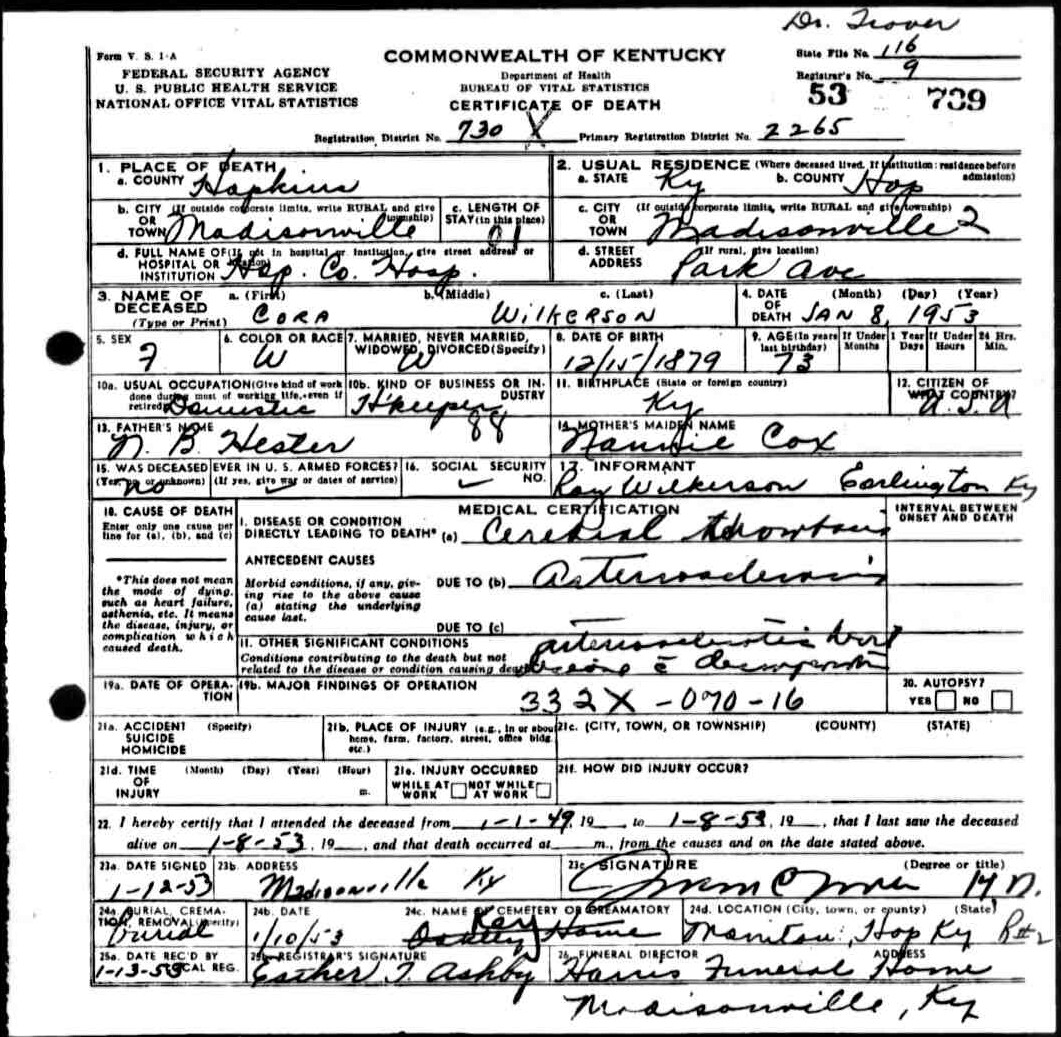 Dr. Trover
Form V. S. 1-A
COMMONWEALTH OF KENTUCKY
State File No. 116
FEDERAL SECURITY AGENCY
Department of Health
Registrar's No. 9
U. S. PUBLIC HEALTH SERVICE
BUREAU OF VITAL STATISTICS
53 739
NATIONAL OFFICE VITAL STATISTICS
CERTIFICATE OF DEATH
Registration District No. 730 X Primary Registration District No. 2265
1. PLACE OF DEATH
a. COUNTY Hopkins
2. USUAL RESIDENCE (Where deceased lived. If institution: residence before admission)
a. STATE Ky b. COUNTY Hop
b. CITY (If outside corporate limits, write RURAL and give township)
OR TOWN Madisonville
c. LENGTH OF STAY (in this place)
c. CITY (If outside corporate limits, write RURAL and give township)
OR TOWN Madisonville 2
d. FULL NAME OF (If not in hospital or institution, give street address or location)
HOSPITAL OR INSTITUTION Hop. Co. Hosp.
d. STREET ADDRESS (If rural, give location)
Park Ave
3. NAME OF DECEASED (Type or Print)
a. (First) b. (Middle) c. (Last)
CORA WILKERSON
4. DATE OF DEATH (Month) (Day) (Year)
JAN 8, 1953
5. SEX
F
6. COLOR OR RACE
W
7. MARRIED, NEVER MARRIED, WIDOWED, DIVORCED (Specify)
W
8. DATE OF BIRTH
12/15/1879
9. AGE (In years last birthday)
73
If Under 1 Year Months Days
If Under 24 Hrs. Hours Min.
10a. USUAL OCCUPATION (Give kind of work done during most of working life, even if retired)
Domestic
10b. KIND OF BUSINESS OR INDUSTRY
H'keeper 88
11. BIRTHPLACE (State or foreign country)
Ky
12. CITIZEN OF WHAT COUNTRY?
U.S.A
13. FATHER'S NAME
N. B. Hester
14. MOTHER'S MAIDEN NAME
Nannie Cox
15. WAS DECEASED EVER IN U. S. ARMED FORCES?
(Yes, no or unknown) (If yes, give war or dates of service)
no
16. SOCIAL SECURITY NO.
17. INFORMANT
Ray Wilkerson Earlington Ky
18. CAUSE OF DEATH
Enter only one cause per line for (a), (b), and (c)
MEDICAL CERTIFICATION
INTERVAL BETWEEN ONSET AND DEATH
I. DISEASE OR CONDITION DIRECTLY LEADING TO DEATH* (a) Cerebral thrombosis
ANTECEDENT CAUSES
*This does not mean the mode of dying, such as heart failure, asthenia, etc. It means the disease, injury, or complication which caused death.
Morbid conditions, if any, giving rise to the above cause (a) stating the underlying cause last.
DUE TO (b) Arteriosclerosis
DUE TO (c)
II. OTHER SIGNIFICANT CONDITIONS
Conditions contributing to the death but not related to the disease or condition causing death.
arteriosclerotic heart
disease c̄ decompensation
19a. DATE OF OPERATION
19b. MAJOR FINDINGS OF OPERATION
332X -070-16
20. AUTOPSY?
YES NO
21a. ACCIDENT SUICIDE HOMICIDE (Specify)
21b. PLACE OF INJURY (e.g., in or about home, farm, factory, street, office bldg. etc.)
21c. (CITY, TOWN, OR TOWNSHIP) (COUNTY) (STATE)
21d. TIME OF INJURY (Month) (Day) (Year) (Hour) m.
21e. INJURY OCCURRED
WHILE AT WORK NOT WHILE AT WORK
21f. HOW DID INJURY OCCUR?
22. I hereby certify that I attended the deceased from 1-1-49, 19 to 1-8-53, 19, that I last saw the deceased
alive on 1-8-53, 19, and that death occurred at m., from the causes and on the date stated above.
23a. DATE SIGNED
1-12-53
23b. ADDRESS
Madisonville Ky
23c. SIGNATURE (Degree or title)
M.D.
24a. BURIAL, CREMATION, REMOVAL (Specify)
Burial
24b. DATE
1/10/53
24c. NAME OF CEMETERY OR CREMATORY
Home
24d. LOCATION (City, town, or county) (State)
Manitou, Hop Ky R#2
25a. DATE REC'D BY LOCAL REG.
1-13-53
25b. REGISTRAR'S SIGNATURE
Esther T. Ashby
26. FUNERAL DIRECTOR ADDRESS
Harris Funeral Home
Madisonville, Ky